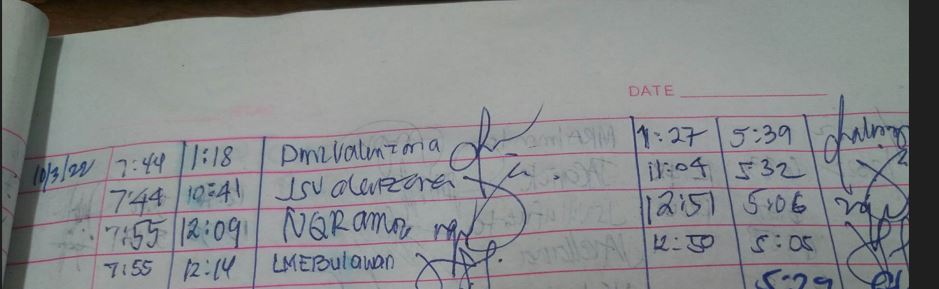 DATE
10/3/22 7:44 11:18 DMValenzona 1:27 5:39
7:44 10:41 JSValenzona 11:04 5:32
7:55 12:09 NQRamos 12:51 5:06
7:55 12:14 LMEBulawan 12:50 5:05
5:29